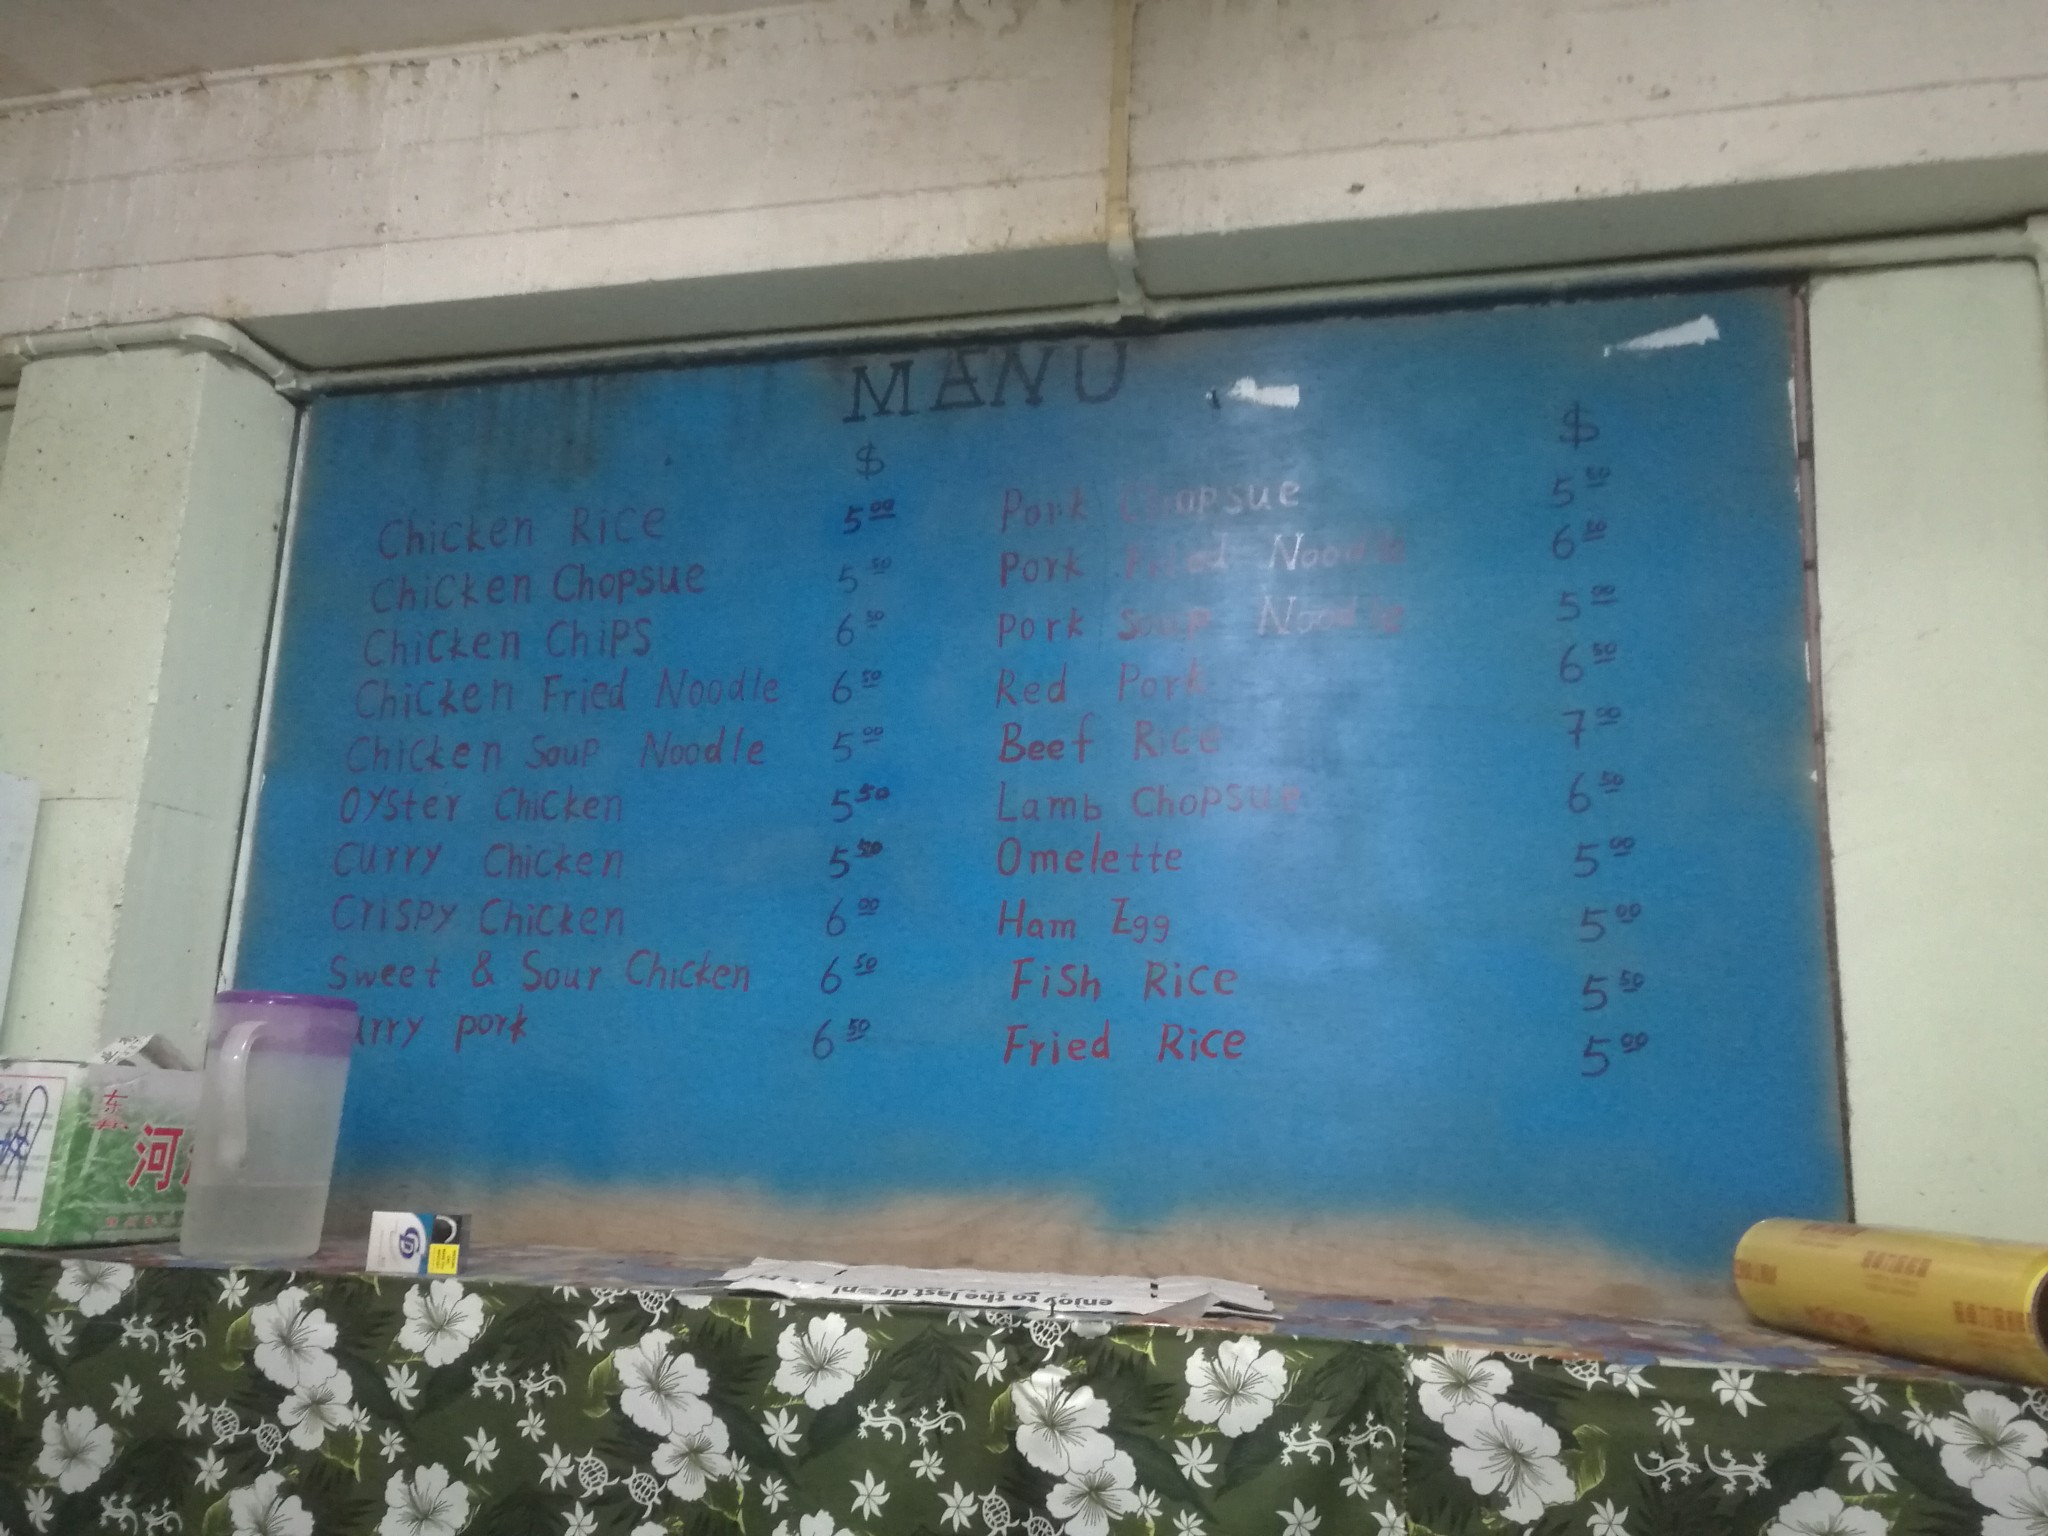 MANU
$
Chicken Rice 5 00
Chicken Chopsue 5 50
Chicken Chips 6 50
Chicken Fried Noodle 6 50
Chicken Soup Noodle 5 00
Oyster Chicken 5 50
Curry Chicken 5 50
Crispy Chicken 6 00
Sweet & Sour Chicken 6 50
urry pork 6 50
$
Pork Chopsue 5 50
Pork Fried Noodle 6 50
Pork Soup Noodle 5 00
Red Pork 6 50
Beef Rice 7 00
Lamb Chopsue 6 50
Omelette 5 00
Ham Egg 5 00
Fish Rice 5 50
Fried Rice 5 00
东
河
enjoy to the last drop!